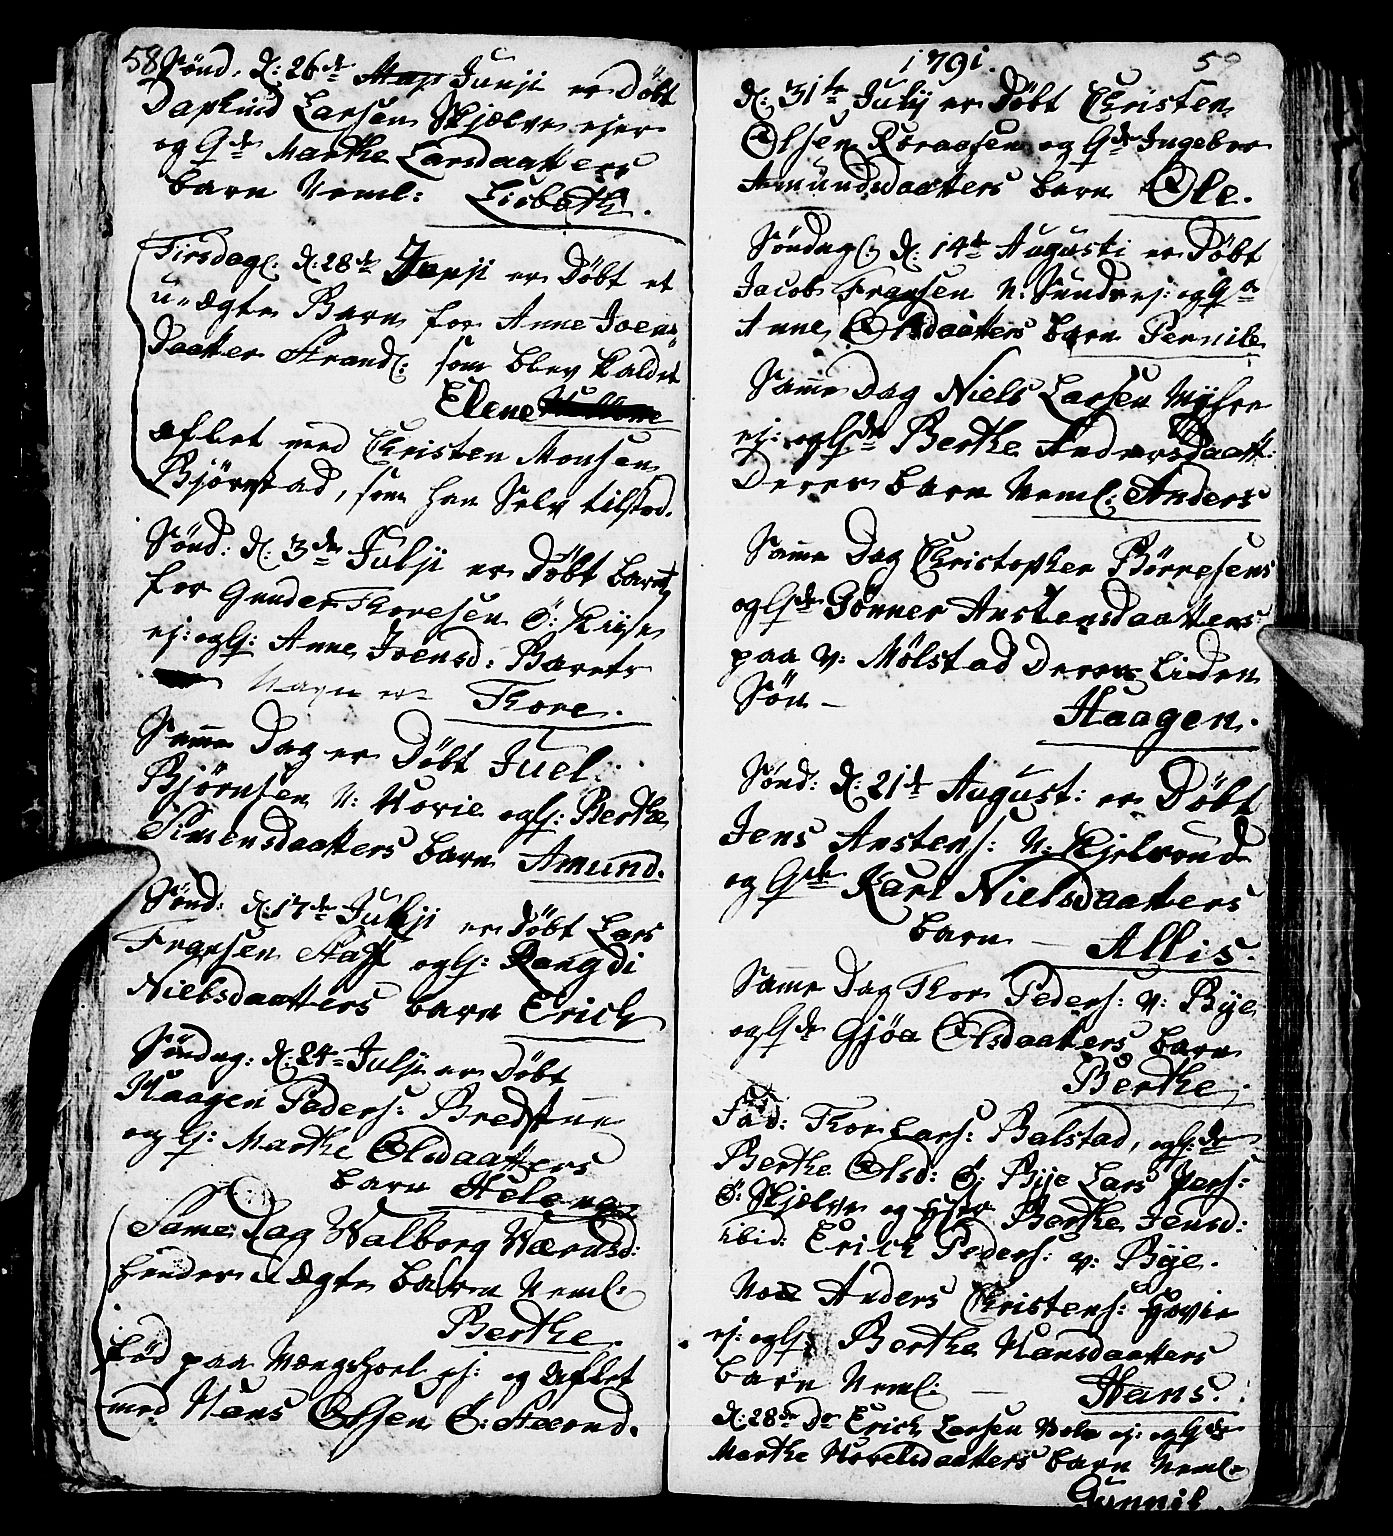 58
Sønd. D: 26de Maji Junji er Døbt
Daphind Larsen Skjælve ejer
og Qde Marthe Larsdaatters
barn Neml: Lisbeth.
Tirsdag. D: 28de Junji er Døbt et
u-ægte Barn for Anne Joens
daatter Strand. som blev kaldet
Elene
aflet med Christen Monsen
Bjørnstad, som han Selv tilstod.
Sønd: D. 3de Julji er Døbt barnet
for Gunder Thoresen Ø: Kiise
ej: og Q: Anne Joensd: Barnets
Navn er Thore.
Samme Dag er Døbt Juel
Bjørnsen N: Hovie og Q: Berthe
Simensdaatters barn Amund.
Sønd: D: 17de Julji er Døbt Lars
Fransen Staff og Q: Rangdi
Nielsdaatters barn Erich
Søndag: D. 24de Julji er Døbt
Haagen Peders: Bredstue
og Q: Marthe Olsdaatters
barn Helene
Same Dag Walborg Wærnsd:
hendes u-ægte barn Neml:
Berthe.
fød paa Wængshoel ej: og aflet
med Hans Olsen Ø: Skiønd.
1791. 59
D. 31te Julij er Døbt Christen
Olsen Roraasen og Qde Ingebor
Amundsdaatters barn Ole.
Søndag. D. 14de Augusti er Døbt
Jacob Fransen N: Sundve ej: og Q
Anne Olsdaatters barn Pernile
Samme Dag Niels Larsen Myhre
ej: og Qde Berthe Andersdaatt:
Deres barn Neml: Anders
Samme Dag Christopher Børresens
og Qde Gønner Anstensdaatters
paa V: Mølstad Deres liden
Søn - Haagen.
Sønd: D. 21de August: er Døbt
Jens Anstens: N: Kjelsrud
og Qde Kari Nielsdaatters
barn - Allis.
Samme Dag Thor Peders: V: Bye
og Qde Gjøa Olsdaatters barn
Berthe.
Fad: Thor Lars: Balstad, og Q: de
Berthe Olsd: Ø: Bye Lars Pers:
Ø: Skjælve og Berthe Jensd:
ibid: Erich Peders: V: Bye.
Anders Christens: Hovie
ej: og Q: Berthe Hansdaatters
barn Neml: - Hans.
D: 28de Do Erich Larsen ej: og Qde
Marthe Hovelsdaatters barn Neml:
Gunnil